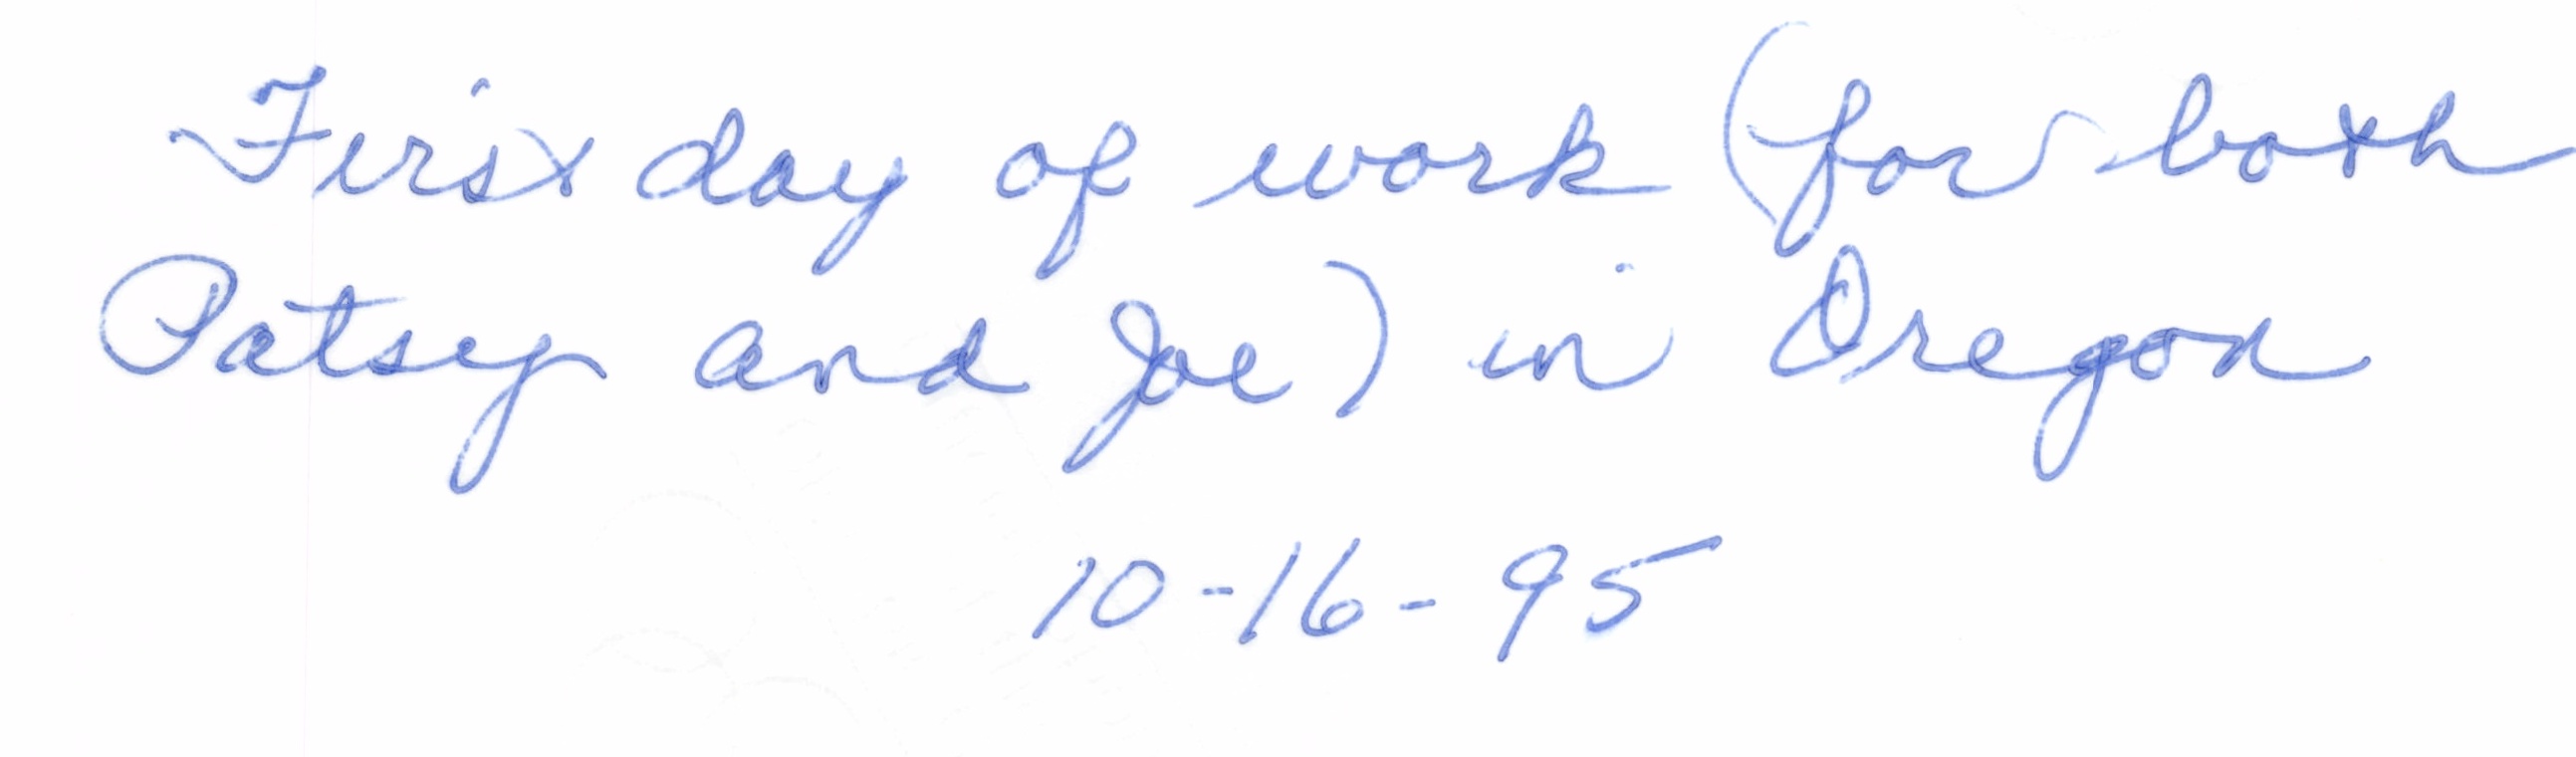 First day of work (for both
Patsy and Joe) in Oregon
10-16-95